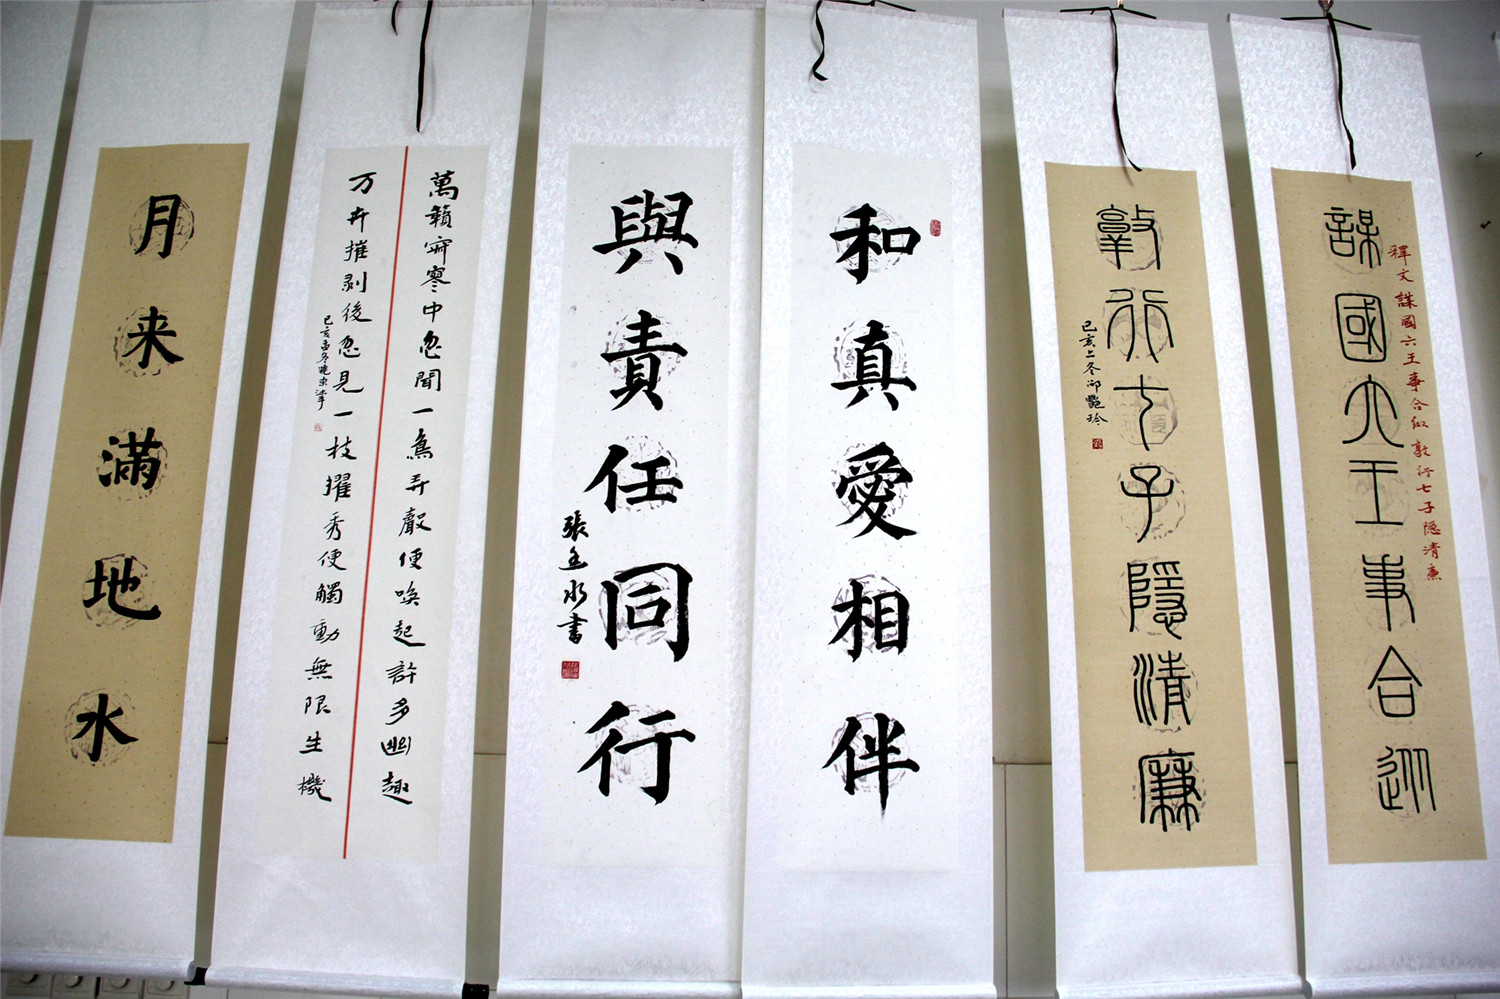 釋文 謀國六王事合 敦行七子隐清廉
謀國六王事合從
敦行七子隱清廉
己亥上冬邵艷玲
和真愛相伴
與責任同行
張玉水書
萬籟寂寥中忽聞一鳥弄聲便唤起許多幽趣
万卉摧剥後忽見一枝擢秀便觸動無限生機
己亥孟冬晓東
月来滿地水